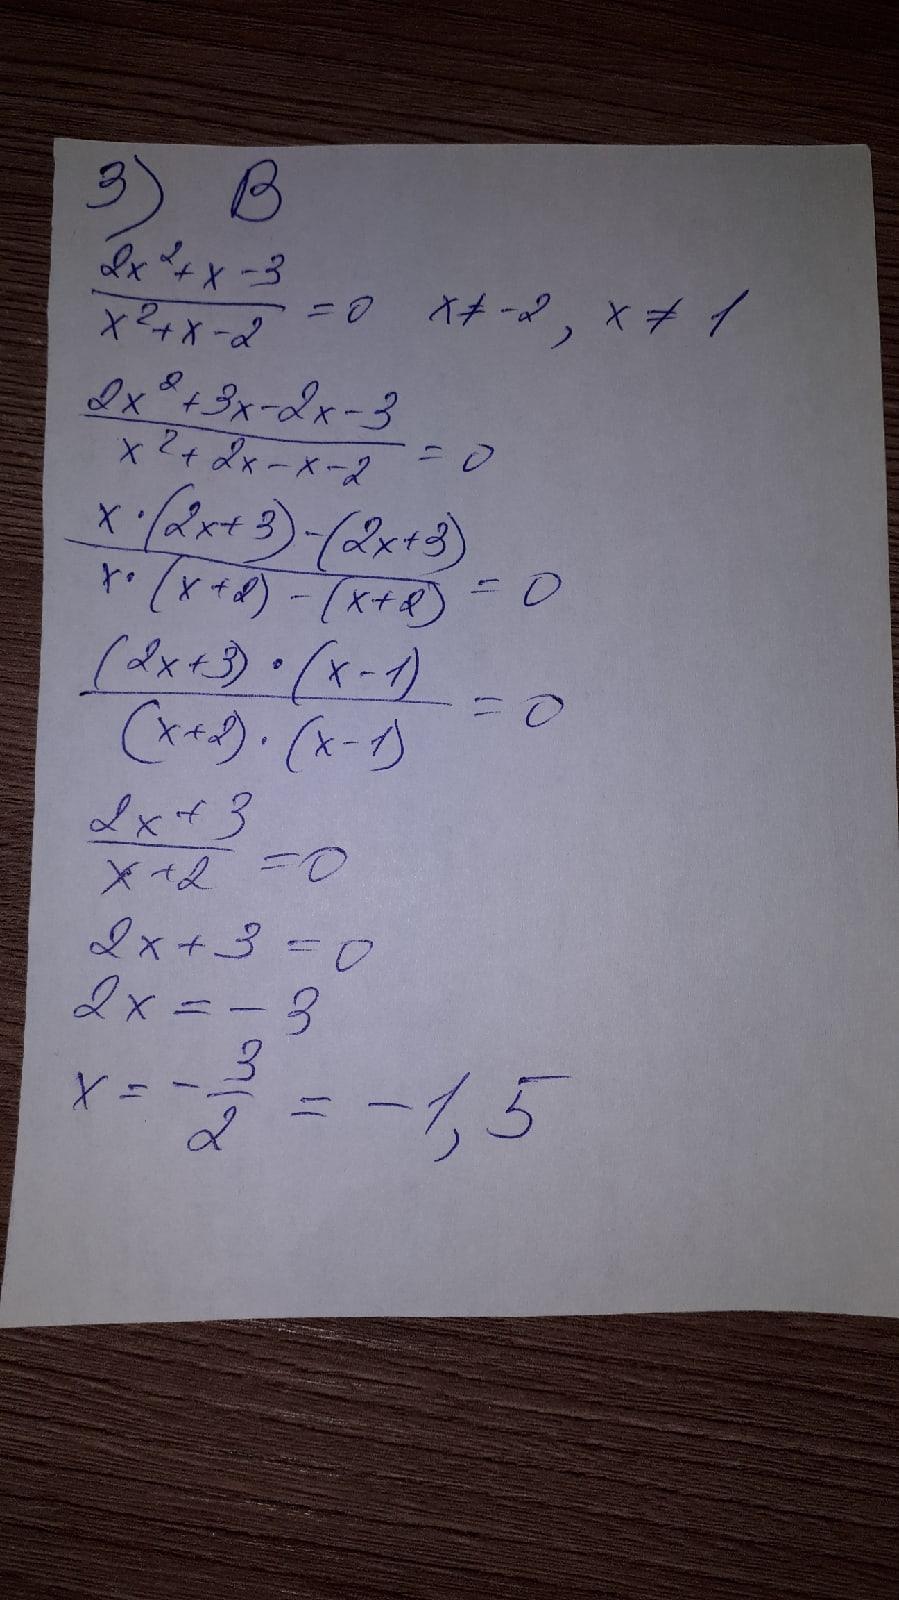 3) B
(2x²+x-3)/(x²+x-2) =0 x≠-2, x≠1
(2x²+3x-2x-3)/(x²+2x-x-2) =0
(x·(2x+3)-(2x+3))/(x·(x+2)-(x+2)) =0
((2x+3)·(x-1))/((x+2)·(x-1)) =0
(2x+3)/(x+2) =0
2x+3=0
2x=-3
x=-3/2=-1,5